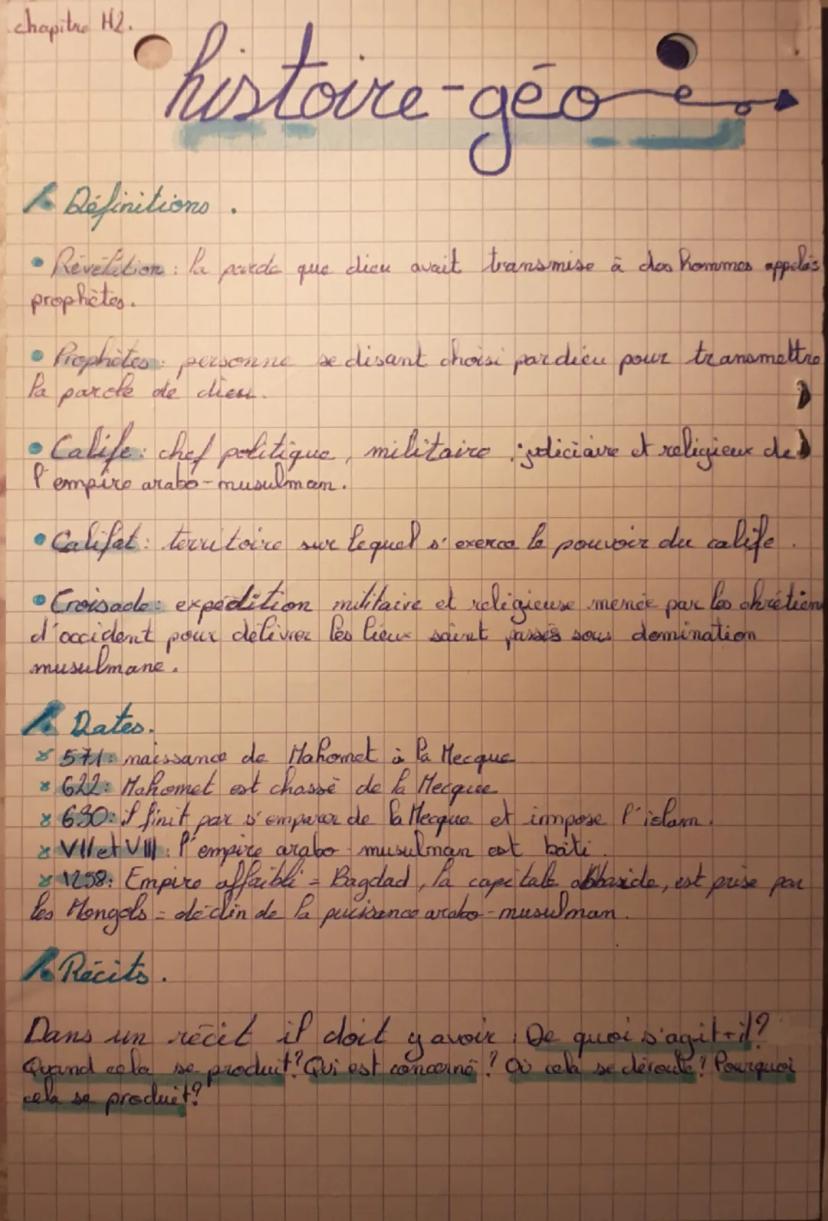 chapitre H2.
histoire-géo
Définitions.
• Révélation : la parole que dieu avait transmise à des hommes appelés
prophètes.
• Prophètes : personne se disant choisi par dieu pour transmettre
la parole de dieu.
• Calife : chef politique, militaire, judiciaire et religieux de
l'empire arabo-musulman.
• Califat : territoire sur lequel s'exerce le pouvoir du calife.
• Croisade : expédition militaire et religieuse menée par les chrétiens
d'occident pour délivrer les lieux saint passés sous domination
musulmane.
Dates.
× 571 : naissance de Mahomet à la Mecque
× 622 : Mahomet est chassé de la Mecque
× 630 : il finit par s'emparer de la Mecque et impose l'islam.
× VII et VIII : l'empire arabo-musulman est bâti.
× 1258 : Empire affaibli = Bagdad, la capitale abbaside, est prise par
les Mongols = déclin de la puissance arabo-musulman.
Récits.
Dans un récit il doit y avoir : De quoi s'agit-il ?
Quand cela se produit ? Qui est concerné ? Où cela se déroule ? Pourquoi
cela se produit ?